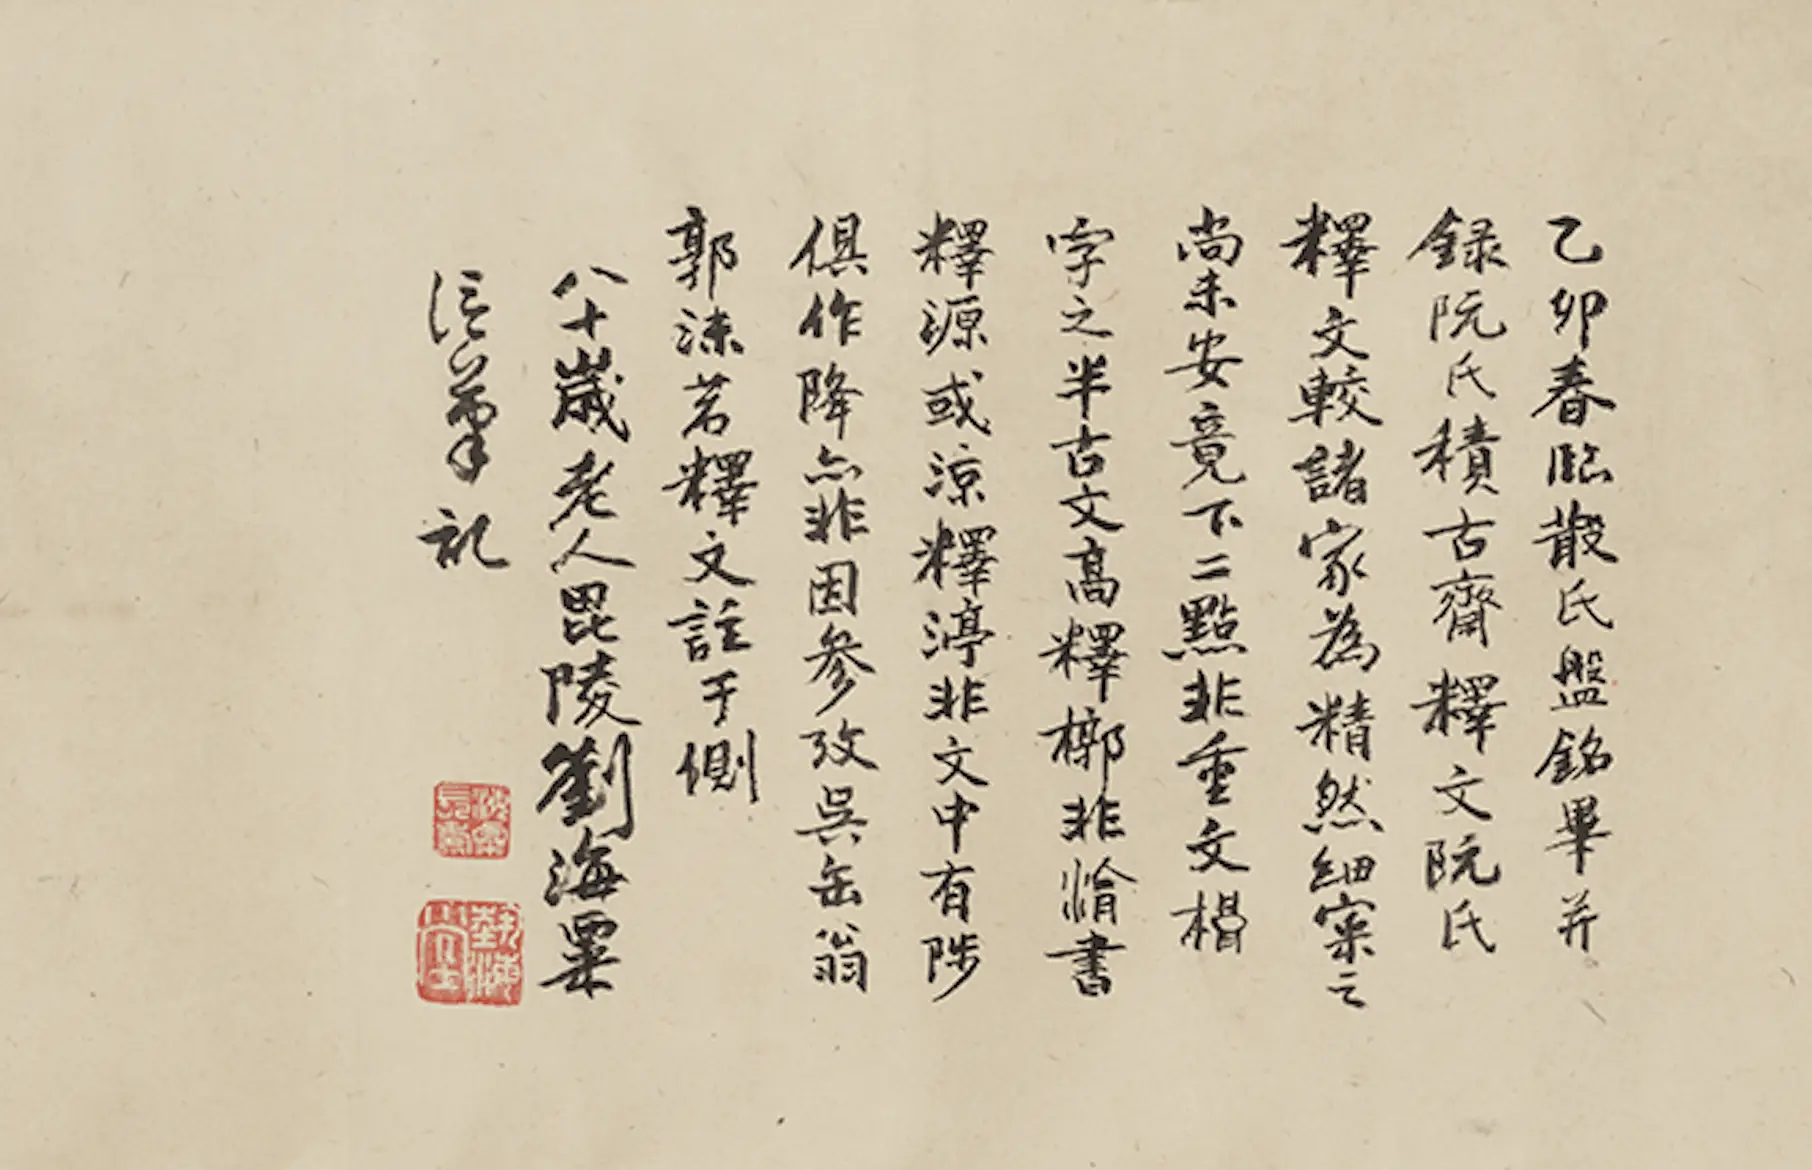 乙卯春臨散氏盤銘畢并
録阮氏積古齋釋文阮氏
釋文較諸家為精然細案之
尚未安竟下二點非重文楬
字之半古文高釋槨非㵂書
釋源或涼釋渟非文中有陟
俱作降亦非因參攷吳缶翁
郭沫若釋文註于側
八十歲老人毘陵劉海粟
信筆記
海粟
長壽
藝海
堂